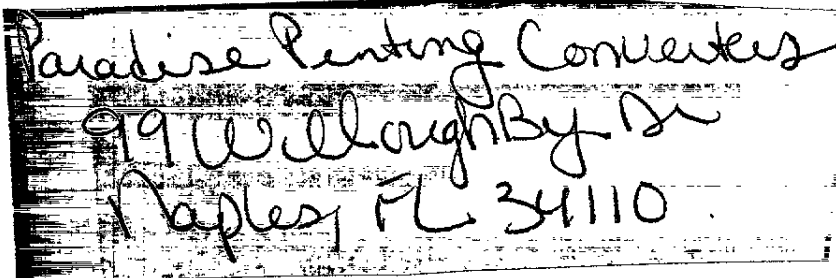 Paradise Printing Converters
99 Willoughby Dr
Naples, FL 34110